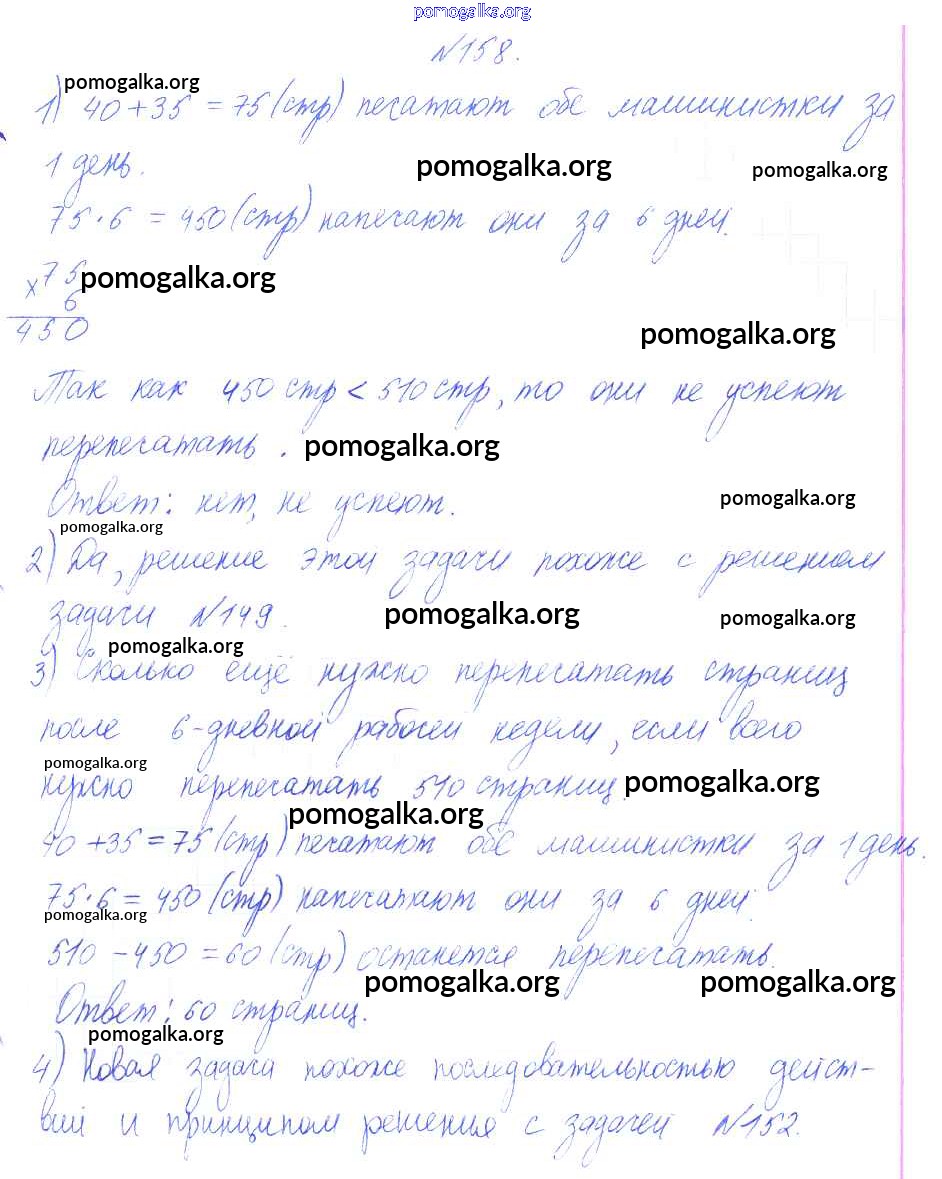 pomogalka.org
№158.
pomogalka.org
1) 40+35 = 75 (стр) печатают обе машинистки за
1 день.
pomogalka.org
pomogalka.org
75·6 = 450 (стр) напечают они за 6 дней.
×75
pomogalka.org
6
450
pomogalka.org
Так как 450 стр < 510 стр, то они не успеют
перепечатать.
pomogalka.org
Ответ: нет, не успеют.
pomogalka.org
pomogalka.org
2) Да, решение этой задачи похоже с решением
задачи №149.
pomogalka.org
pomogalka.org
pomogalka.org
3) Сколько ещё нужно перепечатать страниц
после 6-дневной рабочей недели, если всего
pomogalka.org
нужно перепечатать 510 страниц.
pomogalka.org
pomogalka.org
40+35=75 (стр) печатают обе машинистки за 1 день.
75·6 = 450 (стр) напечатают они за 6 дней.
pomogalka.org
510-450 = 60 (стр) останется перепечатать.
pomogalka.org
pomogalka.org
Ответ: 60 страниц.
pomogalka.org
4) Новая задача похоже последовательностью дейст-
вий и принципом решения с задачей №152.